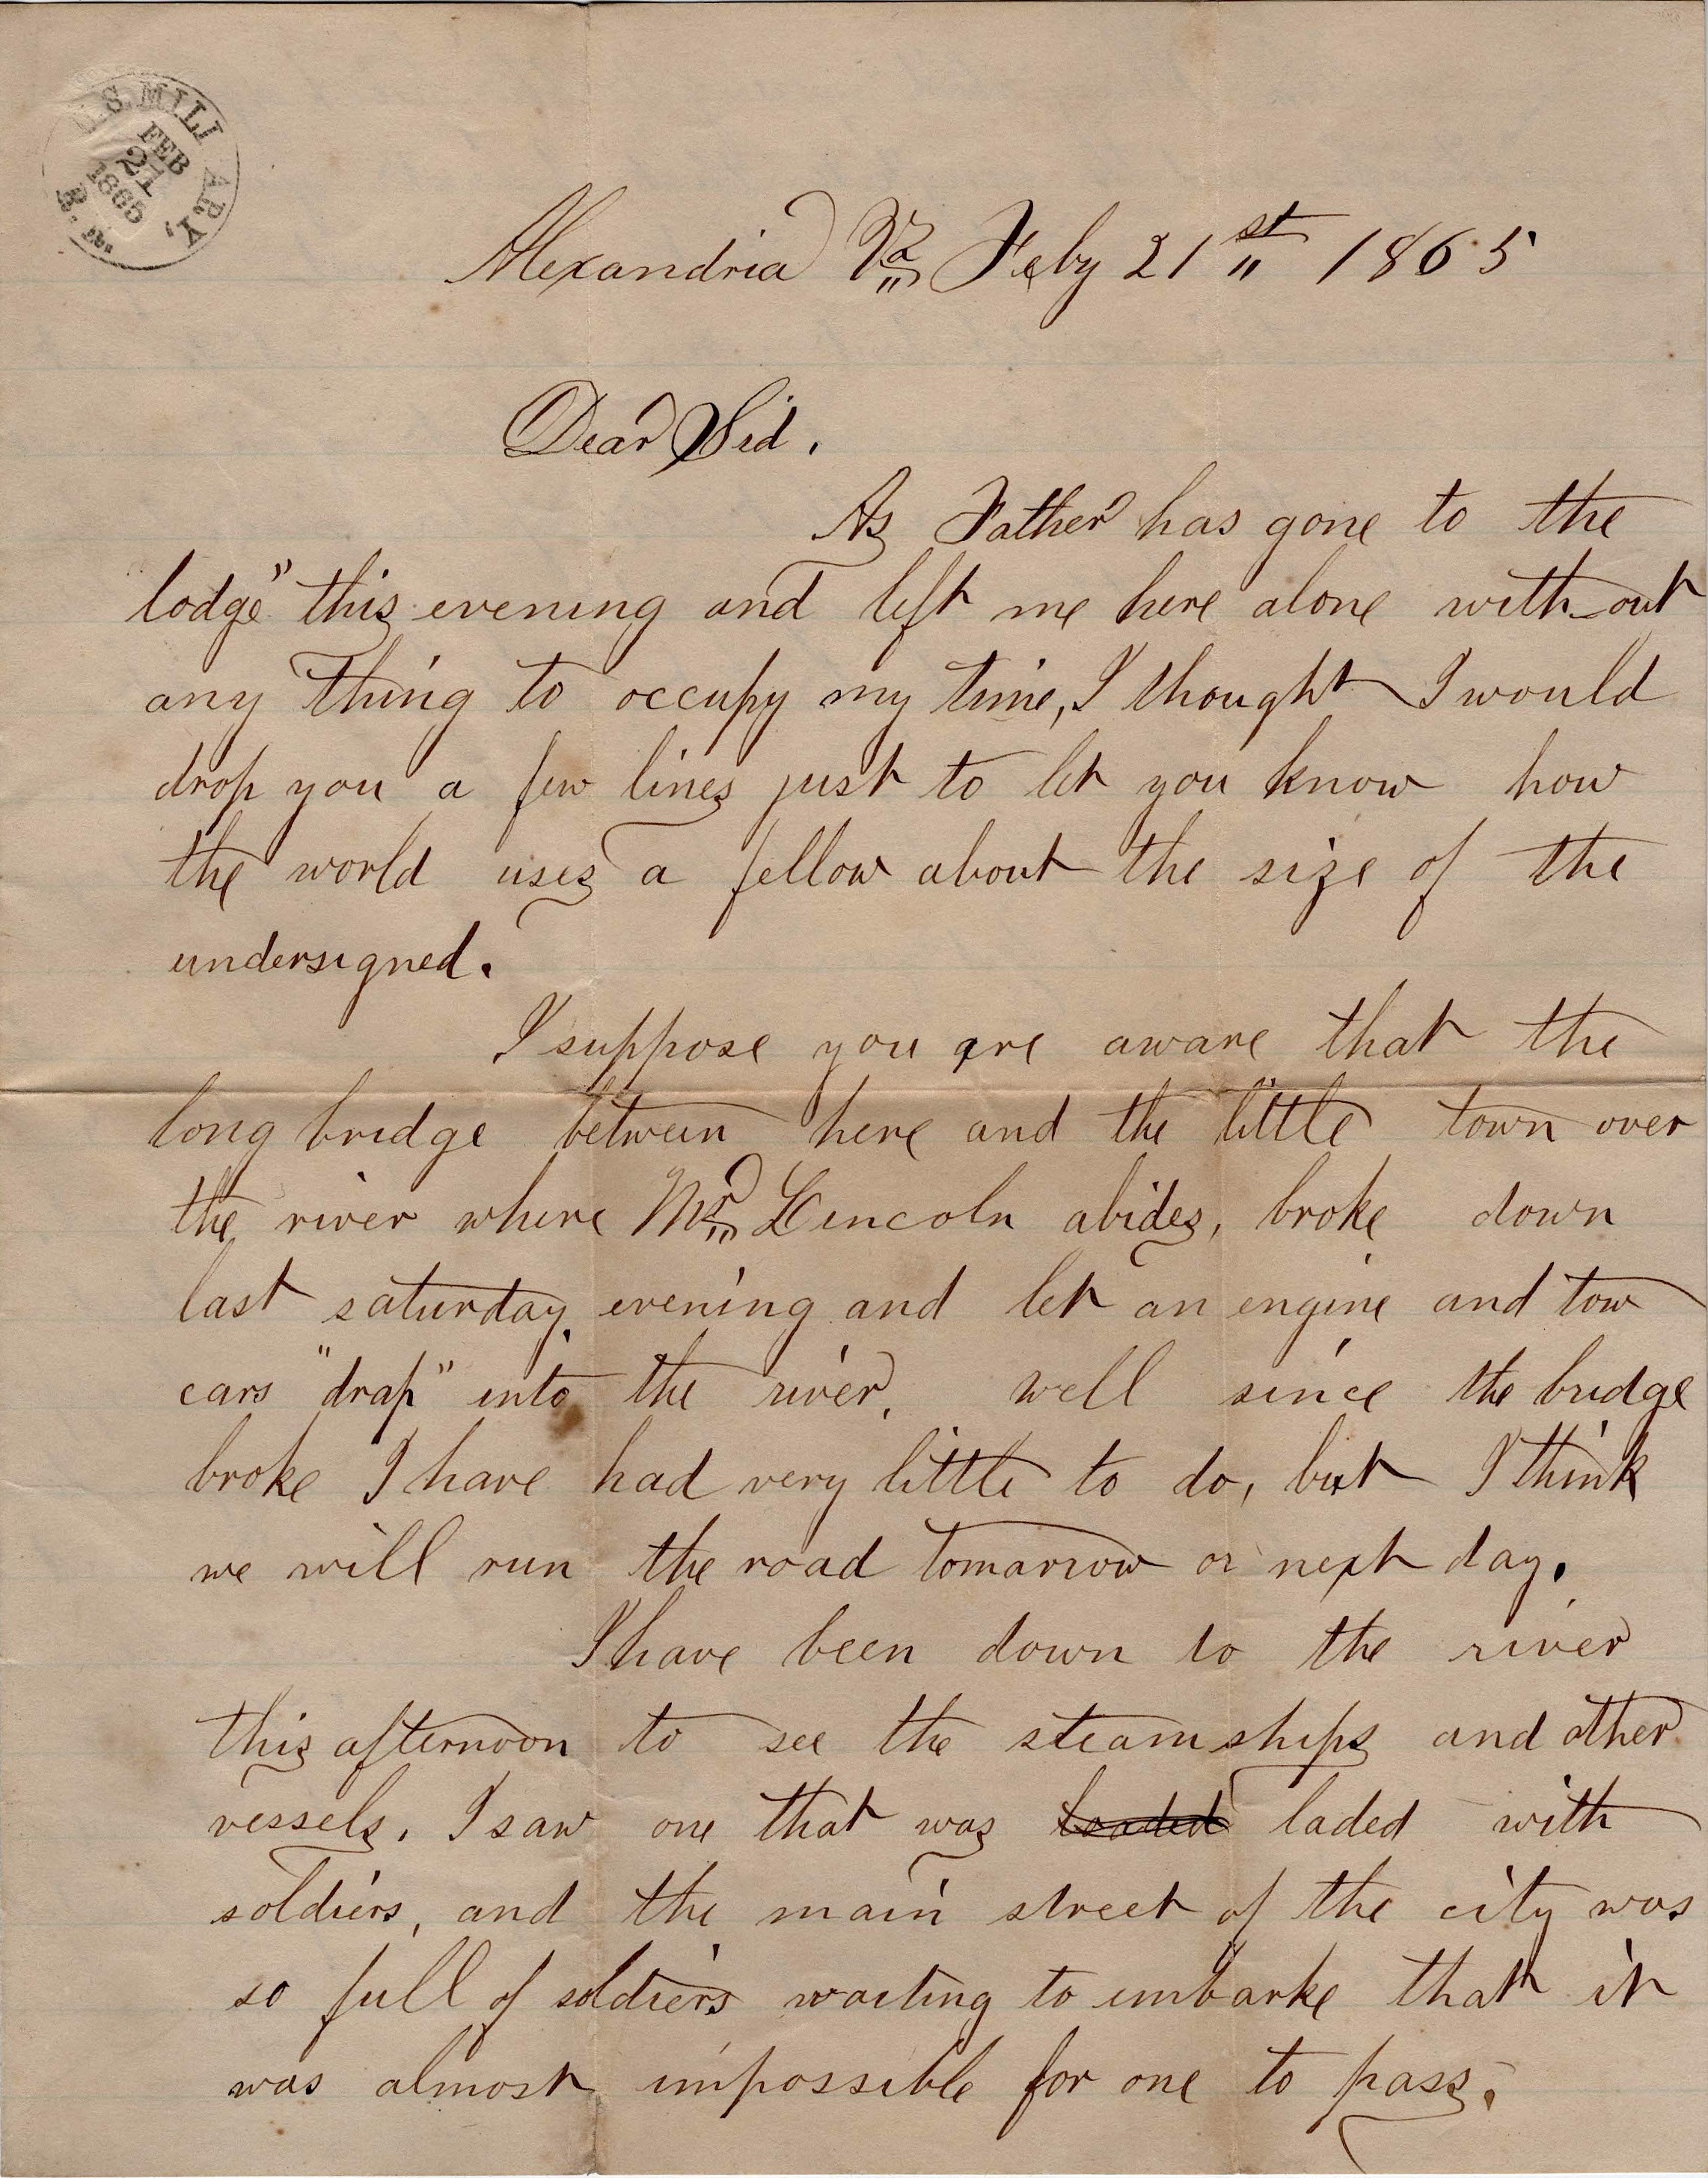 U.S. MILI ARY,
FEB
21
1865
R. R.
Alexandria Va Feby 21st 1865
Dear Sid.
As Father has gone to the
lodge" this evening and left me here alone with-out
any thing to occupy my time, I thought I would
drop you a few lines just to let you know how
the world uses a fellow about the size of the
undersigned.
I suppose you are aware that the
long bridge between here and the little town over
the river where Mr Lincoln abides, broke down
last saturday evening and let an engine and tow
cars "drap" into the river. well since the bridge
broke I have had very little to do, but I think
we will run the road tomarrow or next day.
I have been down to the river
this afternoon to see the steam ships and other
vessels. I saw one that was loaded laded with
soldiers, and the main street of the city was
so full of soldiers waiting to imbarke that it
was almost impossible for one to pass.